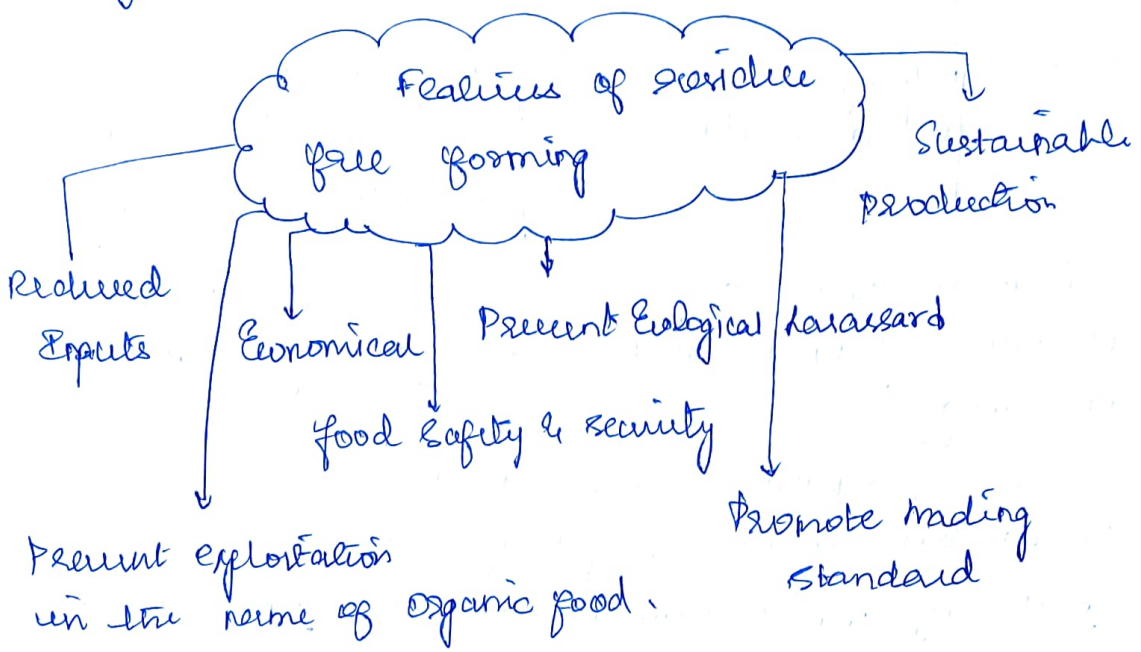 Features of residue
free farming
Sustainable
production
Reduced
Inputs
Economical
Prevent Ecological harassard
food safety & security
Promote trading
standard
Prevent exploitation
in the name of organic food.